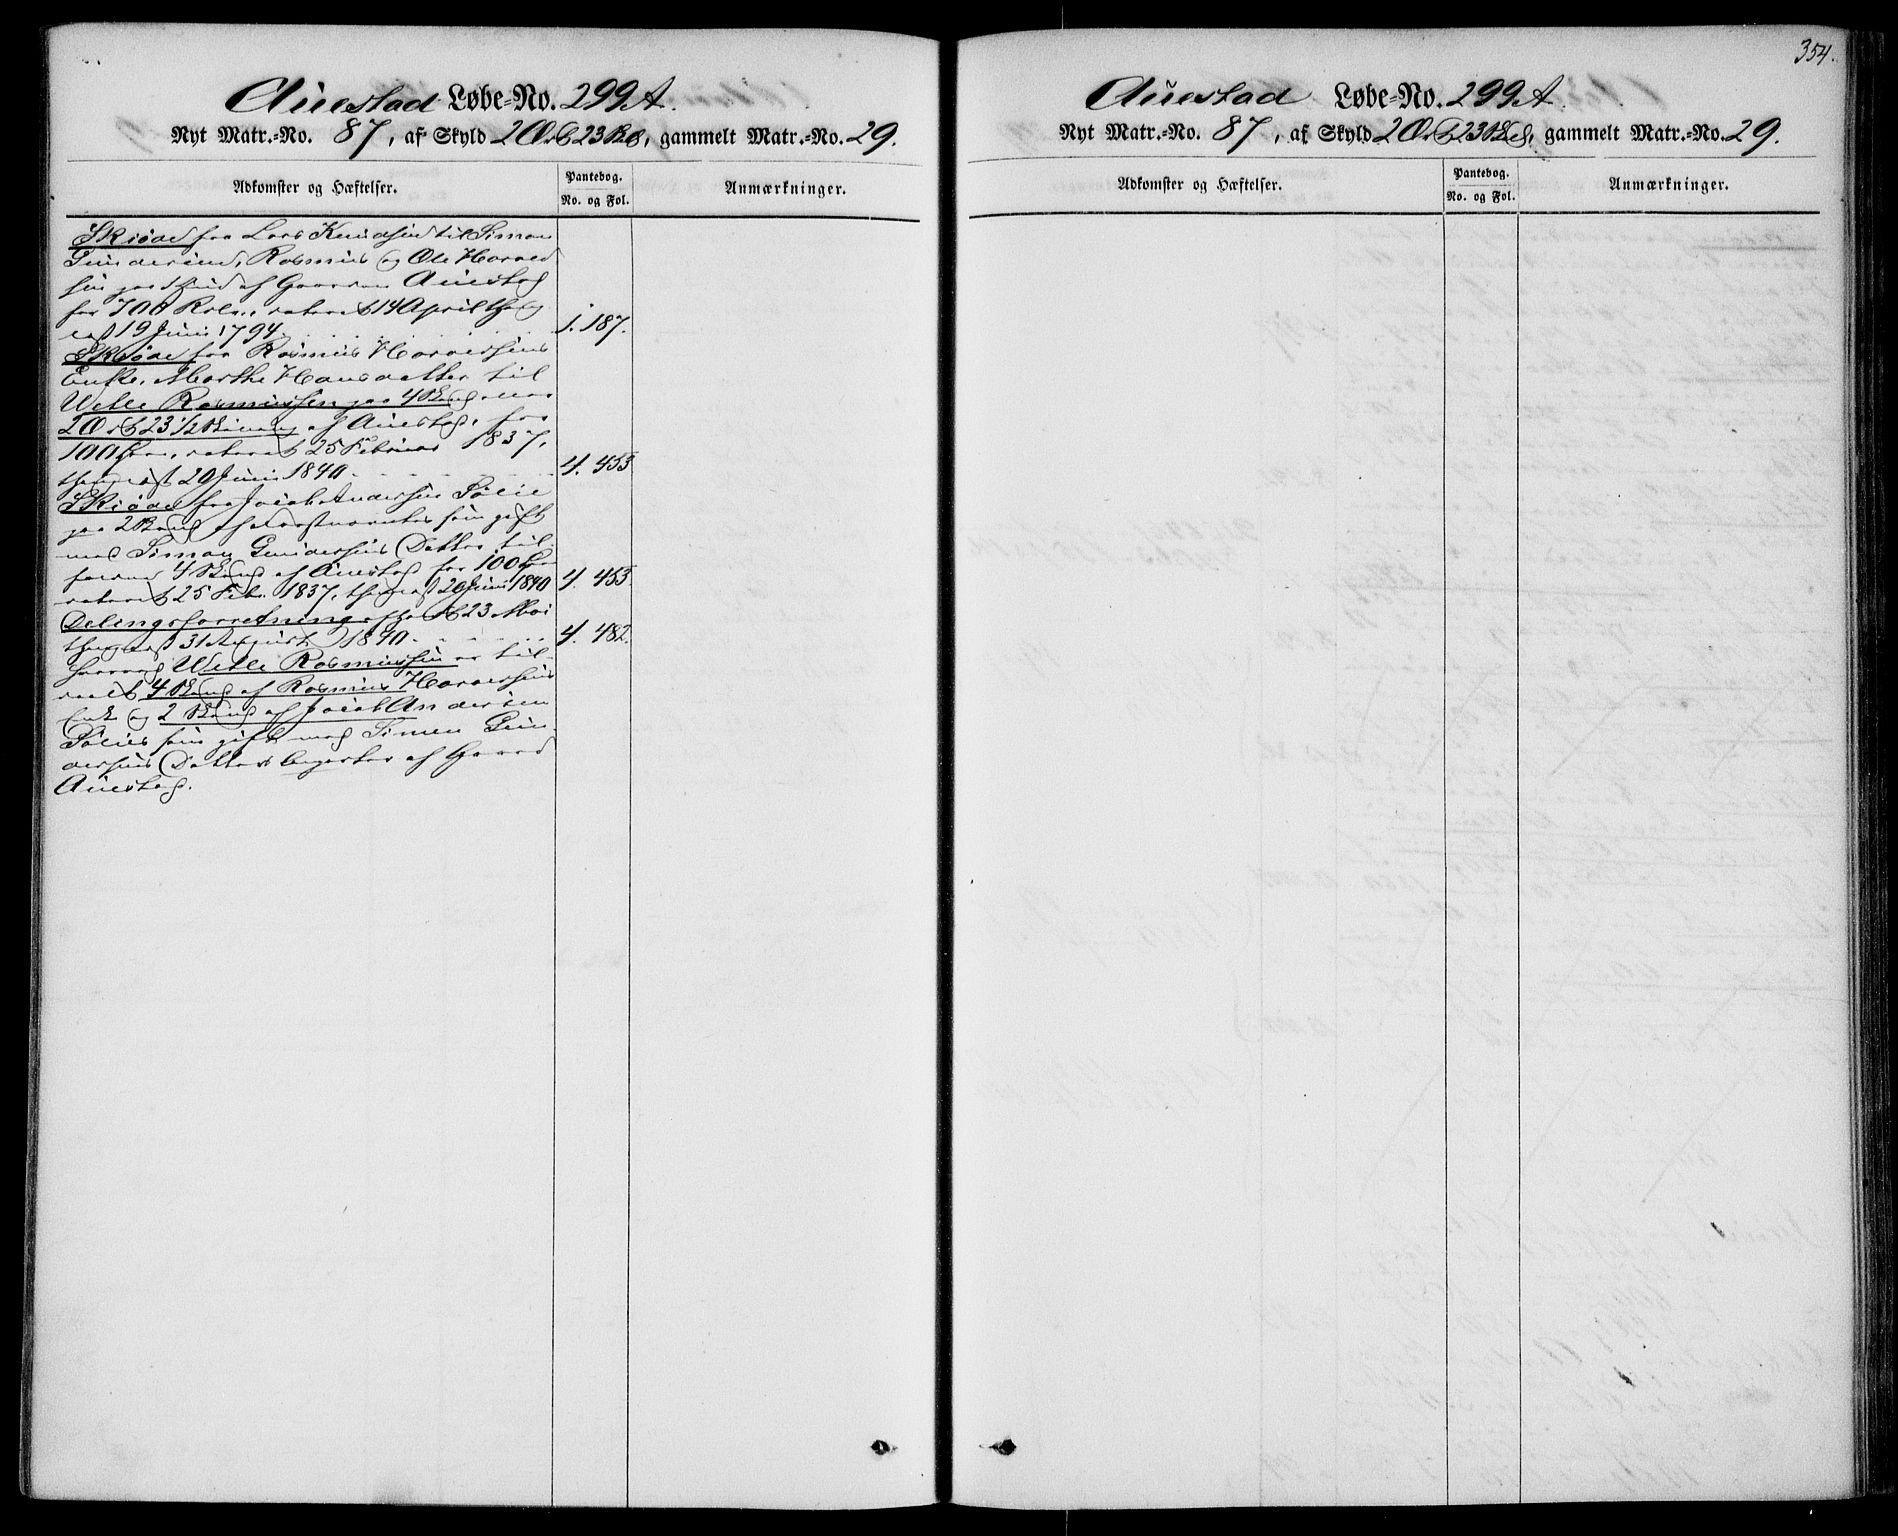 Auestad Løbe=No. 299A.
Nyt Matr.=No. 87, af Skyld 2 Ort 23 Sk, gammelt Matr.=No. 29.
Adkomster og Hæftelser.
Pantebog.
No. og Fol.
Anmærkninger.
Skiøde fra Lars Knudsen til Simon
Gundersen, Rasmus og Ole Haavor
sen paa af Gaarden Auestad
for 700 Rdlr., dateret 14 April thing
læst 19 Juni 1794. 1. 187.
Skiøde fra Rasmus Haavorsens
Enke, Marthe Hansdatter til
Vetle Rasmussen paa 4 Skind
2 Ort 23 1/2 Skilling af Auestad, for
100 Spd., dateret 25 Februar 1837,
thinglæst 20 Juni 1840. 4. 453
Skiøde fra Jacob Andersen Sølie
paa 2 Skind af som gift
med Simon Gundersens Datter til-
4 Skind af Auestad for 100 Spd
dateret 25 Febr. 1837, thinglæst 20 Juni 1840 4. 453.
Delingsforretning afholdt 23 Mai
thinglæst 31 August 1840. 4. 482.
hvorved Vetle Rasmussen er til-
deelt 4 Skind af Rasmus Haavorsens
Enke og 2 Skind af Jacob Andersen
Sølies som gift med Simen Gun
dersens Datters af Gaard
Auestad.
354.
Auestad Løbe=No. 299A.
Nyt Matr.=No. 87, af Skyld 2 Ort 23 Sk, gammelt Matr.=No. 29.
Adkomster og Hæftelser.
Pantebog.
No. og Fol.
Anmærkninger.